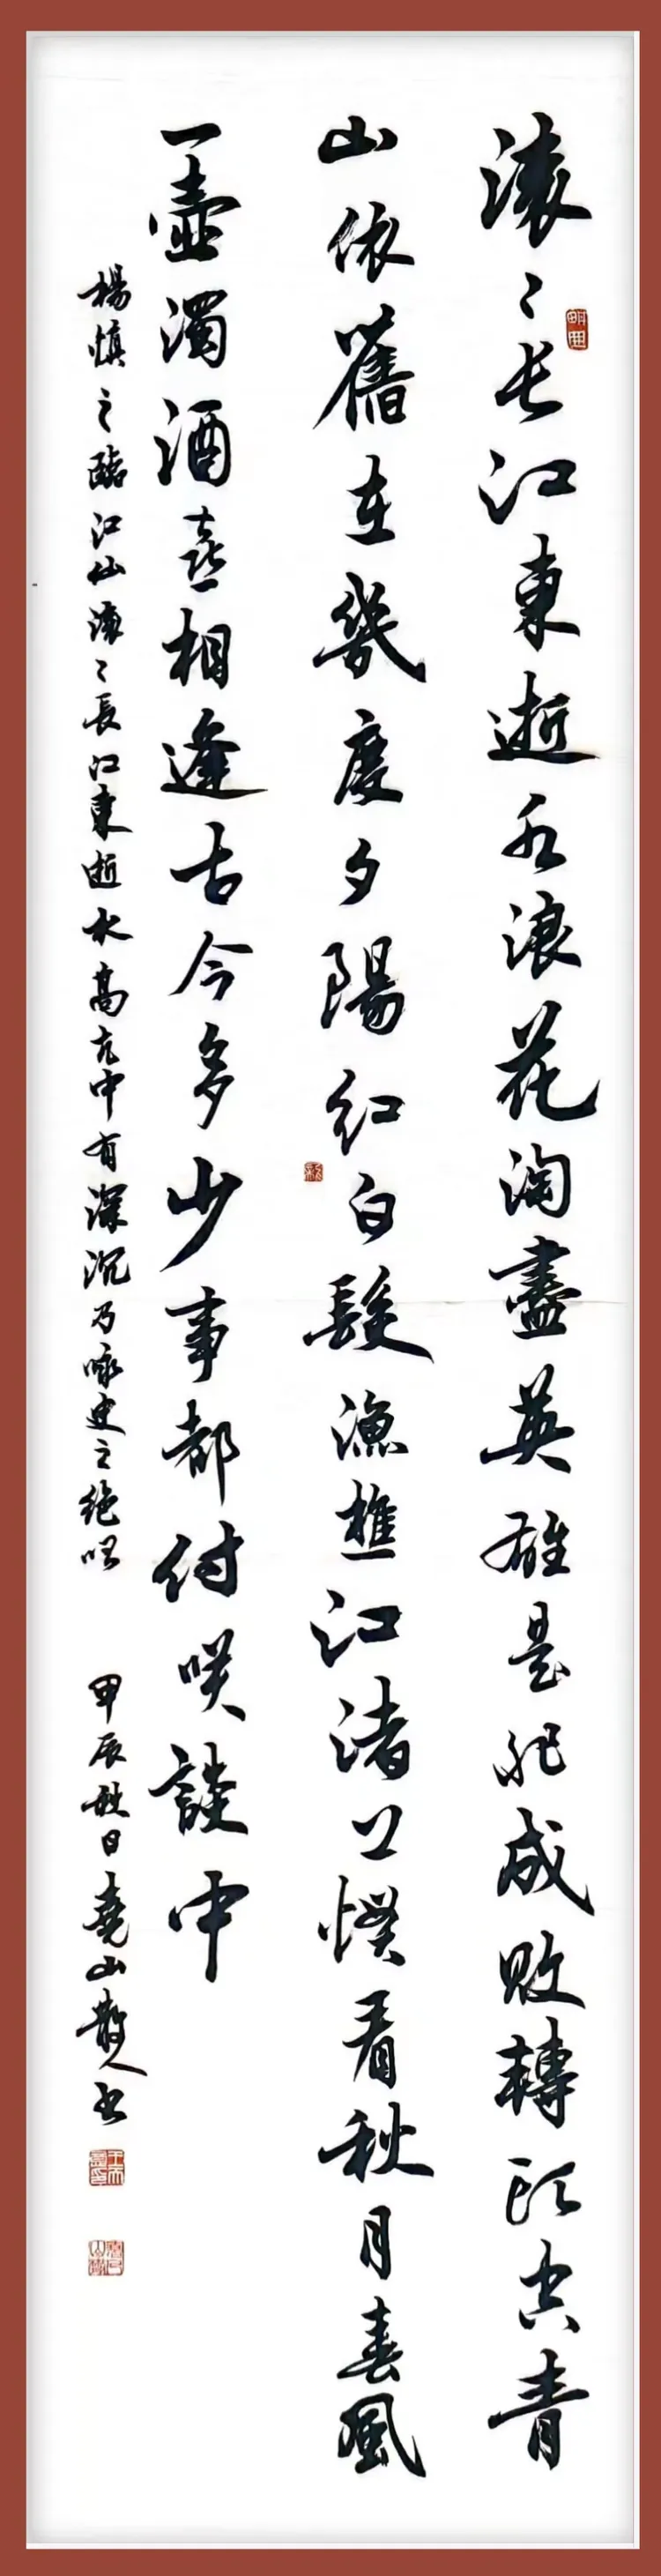 滚〻长江東逝水浪花淘盡英雄是非成敗轉頭空青
山依舊在幾度夕陽紅白髮漁樵江渚上慣看秋月春風
一壺濁酒喜相逢古今多少事都付咲談中
楊慎之臨江仙滚〻長江東逝水高亢中有深沉乃咏史之絶唱
甲辰秋日堯山散人書